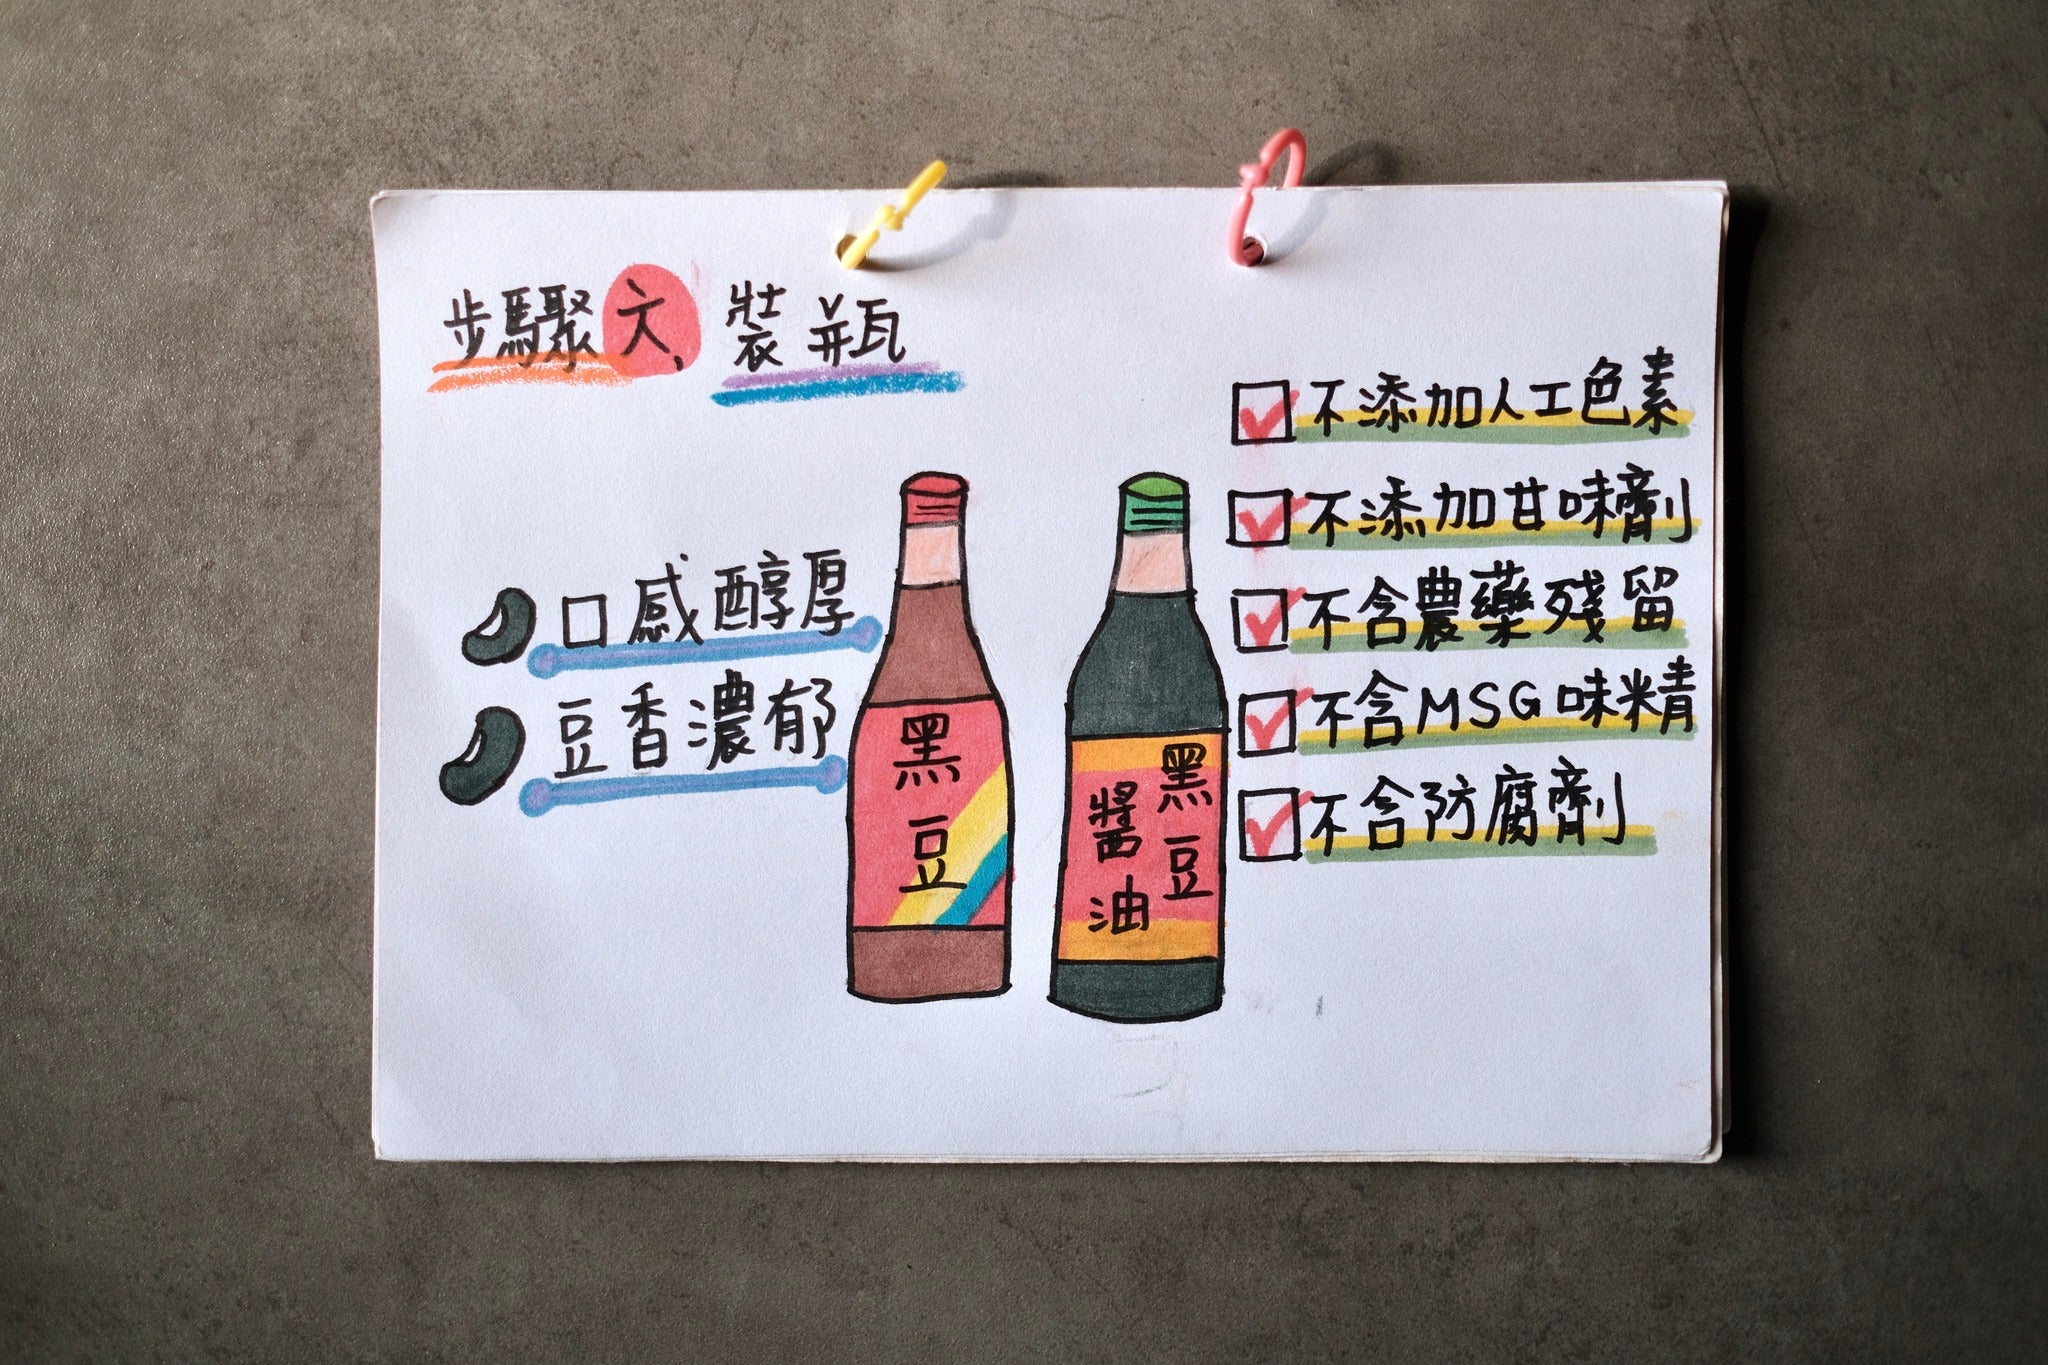 步驟六、裝瓶
口感醇厚
豆香濃郁
黑豆
黑豆
醬油
不添加人工色素
不添加甘味劑
不含農藥殘留
不含MSG味精
不含防腐劑